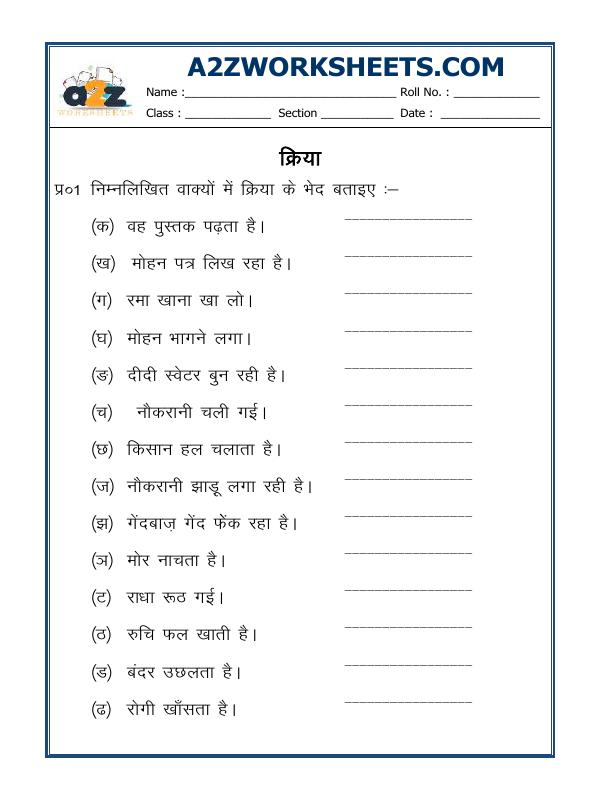 A2ZWORKSHEETS.COM
a2z
WORKSHEETS
Name :________________________________ Roll No. : _____________
Class : _____________ Section ___________ Date : _______________
क्रिया
प्र०1 निम्नलिखित वाक्यों में क्रिया के भेद बताइए :–
(क) वह पुस्तक पढ़ता है। __________________
(ख) मोहन पत्र लिख रहा है। __________________
(ग) रमा खाना खा लो। __________________
(घ) मोहन भागने लगा। __________________
(ङ) दीदी स्वेटर बुन रही है। __________________
(च) नौकरानी चली गई। __________________
(छ) किसान हल चलाता है। __________________
(ज) नौकरानी झाडू लगा रही है। __________________
(झ) गेंदबाज़ गेंद फेंक रहा है। __________________
(ञ) मोर नाचता है। __________________
(ट) राधा रूठ गई। __________________
(ठ) रुचि फल खाती है। __________________
(ड) बंदर उछलता है। __________________
(ढ) रोगी खाँसता है। __________________